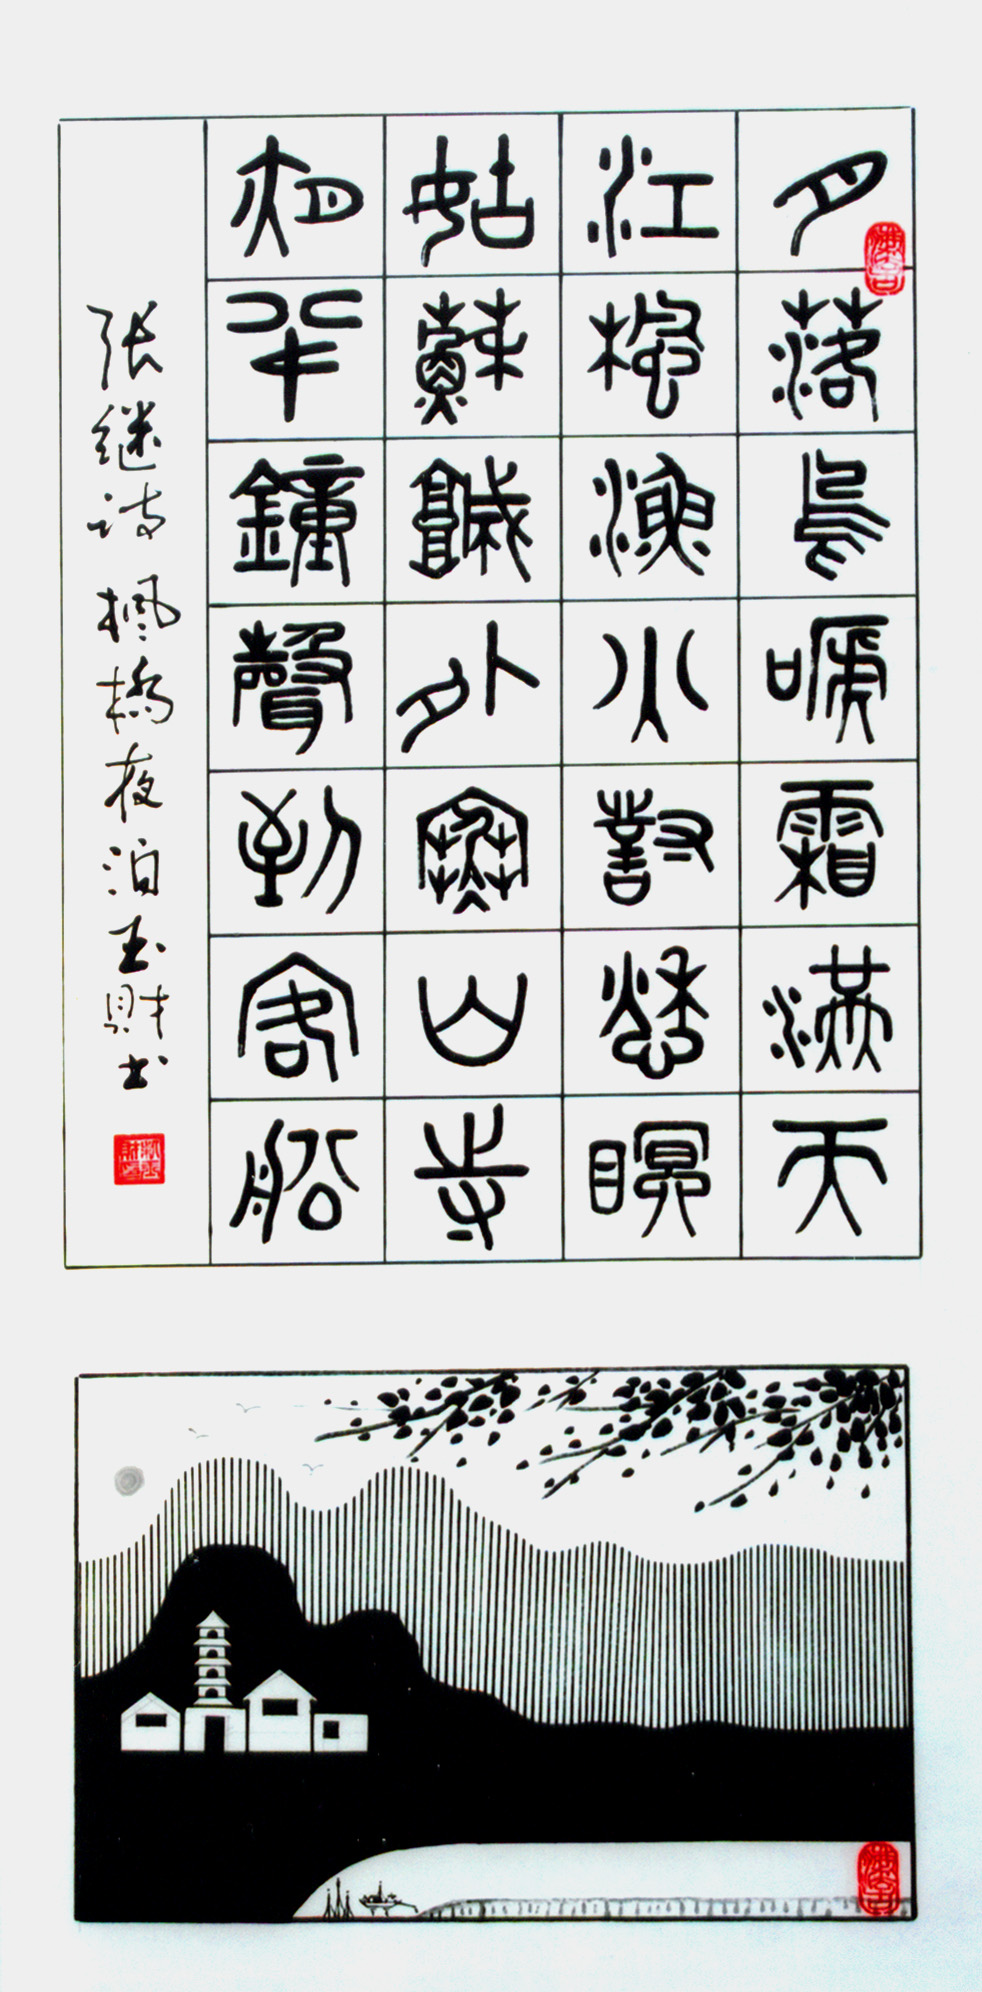 月落烏嗁霜滿天
江楓漁火對愁瞑
姑蘇城外寒山寺
夜半鐘聲到客船
张继诗 枫橋夜泊 玉财书